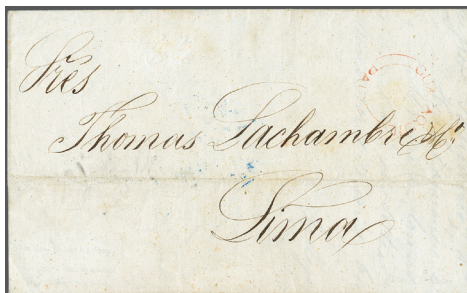 Sres
Thomas Lachambre & Co.
Lima